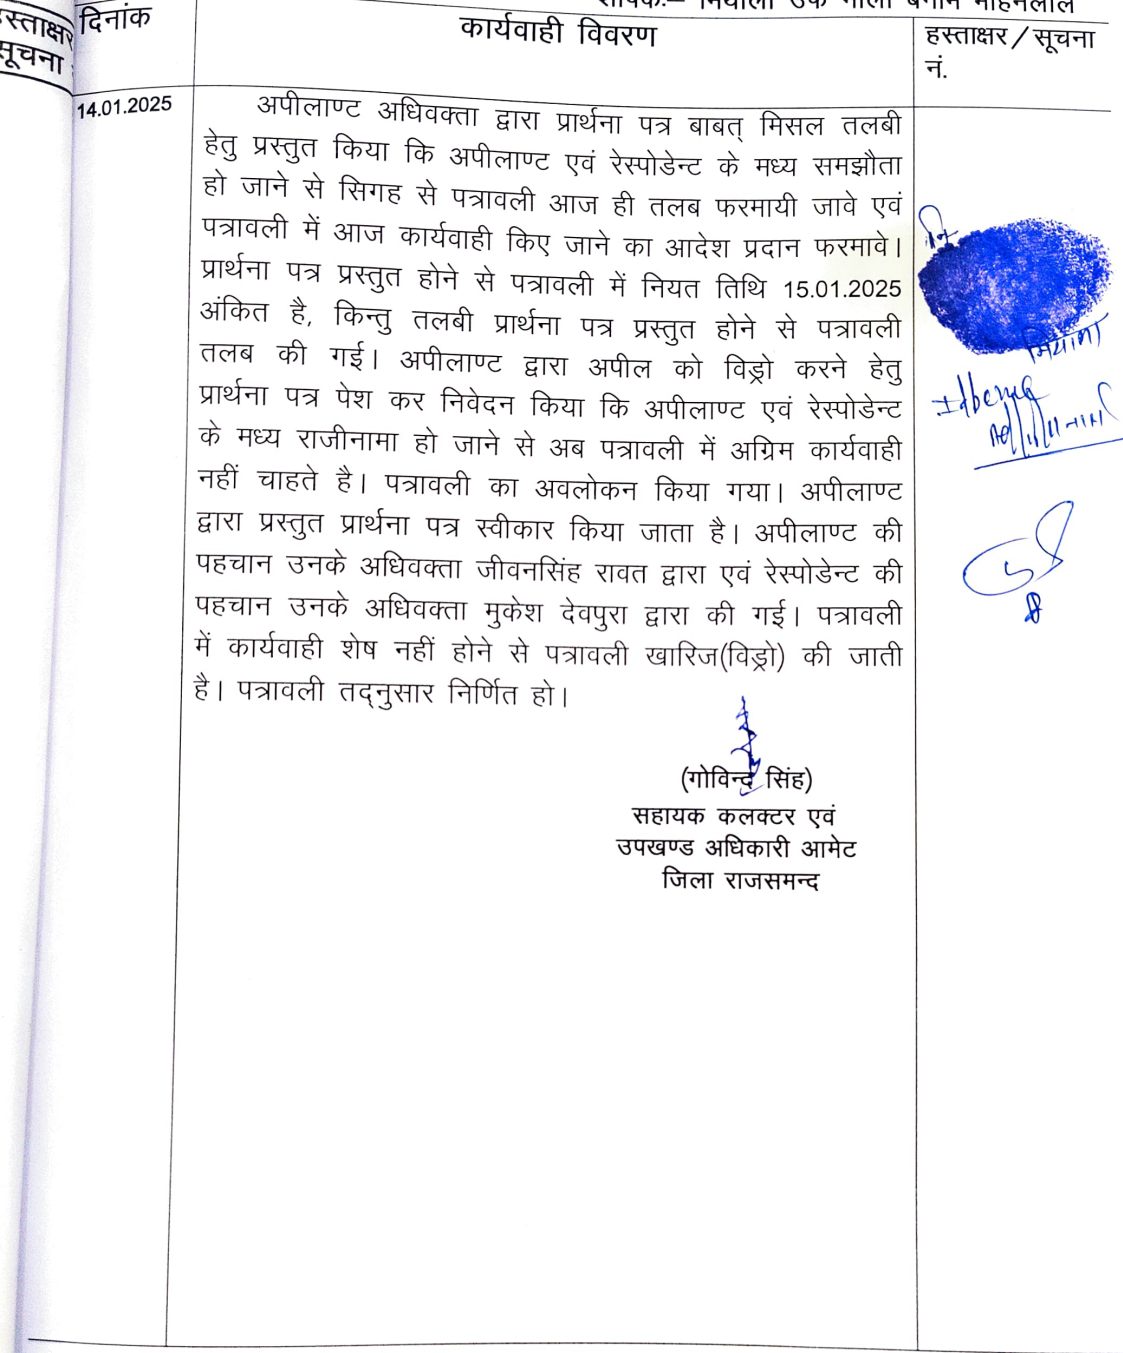 हस्ताक्षर
सूचना
दिनांक
कार्यवाही विवरण
हस्ताक्षर / सूचना
नं.
14.01.2025
अपीलाण्ट अधिवक्ता द्वारा प्रार्थना पत्र बाबत् मिसल तलबी
हेतु प्रस्तुत किया कि अपीलाण्ट एवं रेस्पोडेन्ट के मध्य समझौता
हो जाने से सिगह से पत्रावली आज ही तलब फरमायी जावे एवं
पत्रावली में आज कार्यवाही किए जाने का आदेश प्रदान फरमावे।
प्रार्थना पत्र प्रस्तुत होने से पत्रावली में नियत तिथि 15.01.2025
अंकित है, किन्तु तलबी प्रार्थना पत्र प्रस्तुत होने से पत्रावली
तलब की गई। अपीलाण्ट द्वारा अपील को विड्रो करने हेतु
प्रार्थना पत्र पेश कर निवेदन किया कि अपीलाण्ट एवं रेस्पोडेन्ट
के मध्य राजीनामा हो जाने से अब पत्रावली में अग्रिम कार्यवाही
नहीं चाहते है। पत्रावली का अवलोकन किया गया। अपीलाण्ट
द्वारा प्रस्तुत प्रार्थना पत्र स्वीकार किया जाता है। अपीलाण्ट की
पहचान उनके अधिवक्ता जीवनसिंह रावत द्वारा एवं रेस्पोडेन्ट की
पहचान उनके अधिवक्ता मुकेश देवपुरा द्वारा की गई। पत्रावली
में कार्यवाही शेष नहीं होने से पत्रावली खारिज(विड्रो) की जाती
है। पत्रावली तद्नुसार निर्णित हो।
(गोविन्द सिंह)
सहायक कलक्टर एवं
उपखण्ड अधिकारी आमेट
जिला राजसमन्द